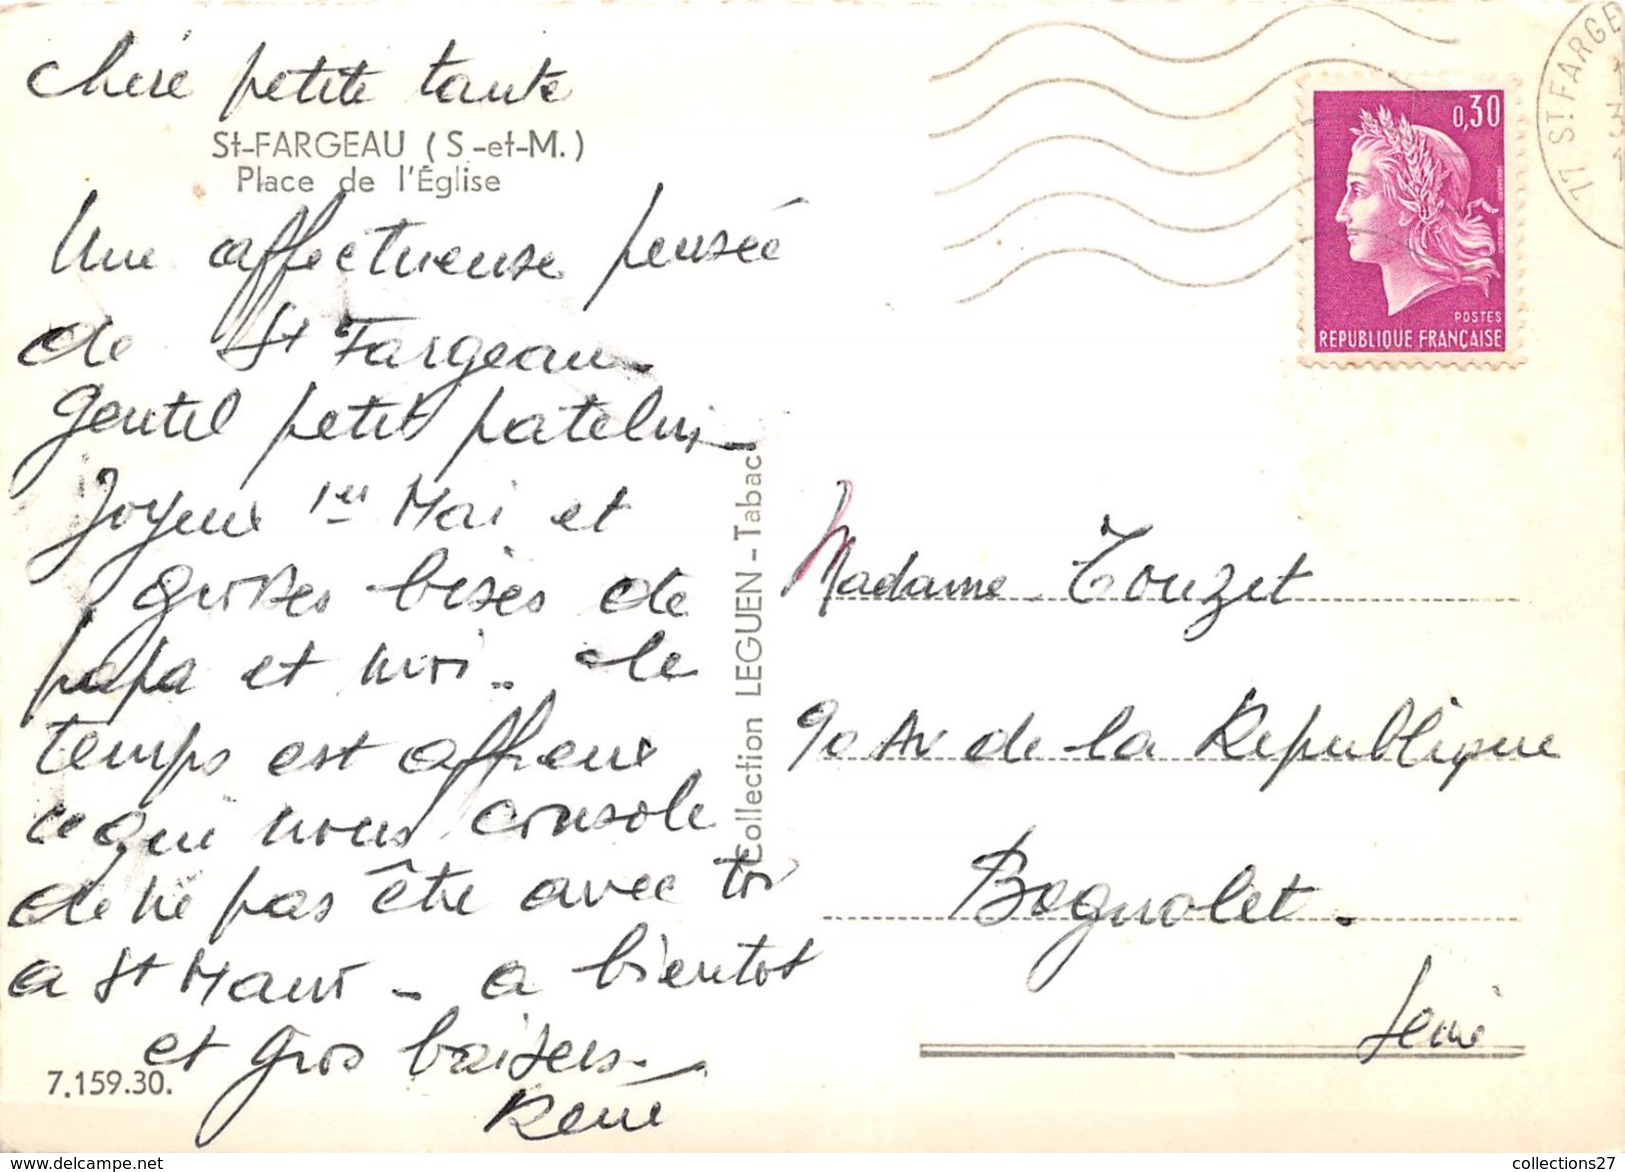 Chère petite tante
St-FARGEAU (S-et-M.)
Place de l'Église
Une affectueuse pensée
de St Fargeau
Gentil petit patelin
Joyeux 1er Mai et
grosses bises de
papa et moi. le
temps est affreux
ce qui nous console
de ne pas être avec toi
a St Maur - a bientot
et gros baisers.
René
7.159.30.
Collection LEGUEN - Tabac
0,30
POSTES
REPUBLIQUE FRANÇAISE
77 ST FARGE
Madame Touzet
90 Av de la Republique
Bagnolet.
Seine
collections27